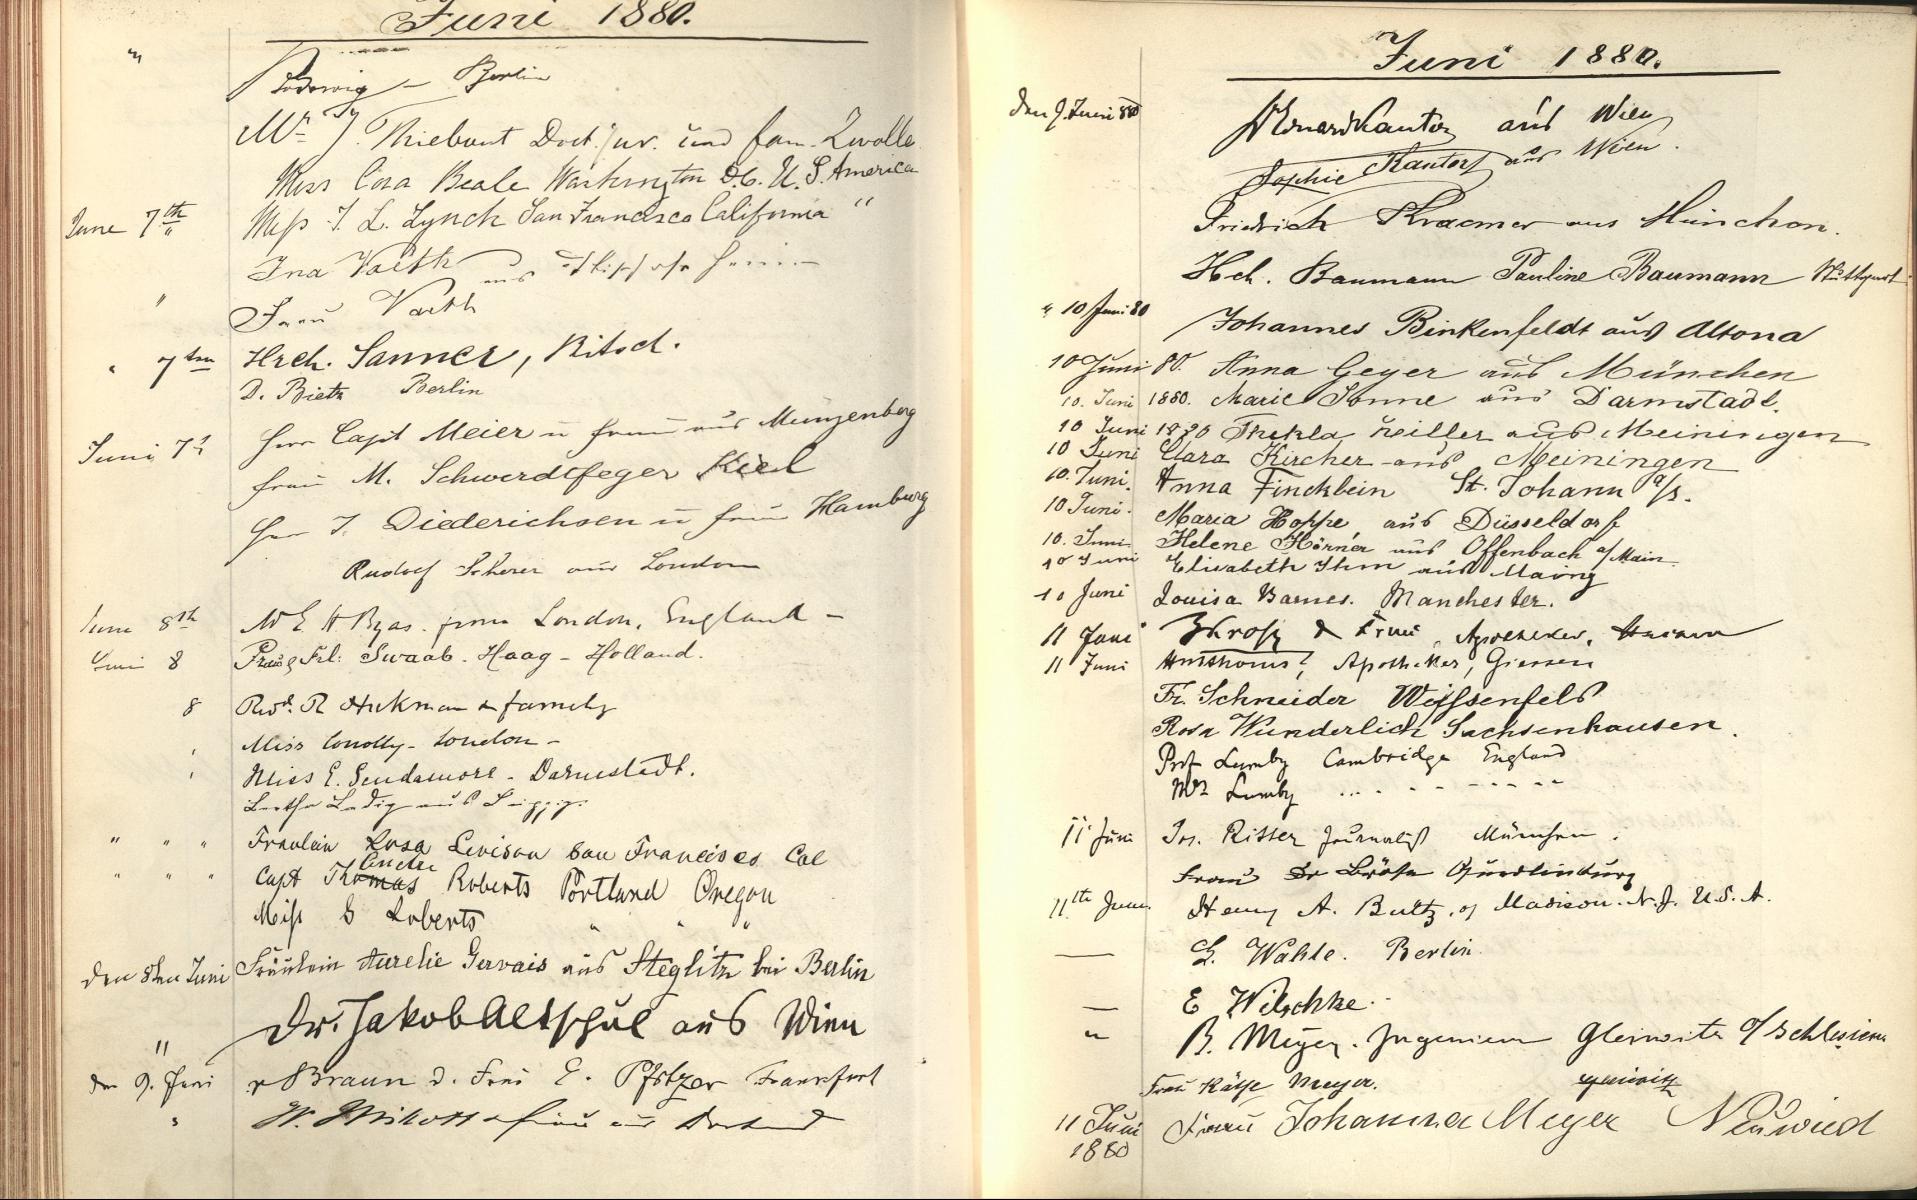 Juni 1880.
" Ludewig - Berlin
Mr J. Thiebout Doct. jur. und fam. Zwolle
Miss Cora Beale Washington D.C. U.S. America
June 7th Miss J. L. Lynch San Francisco California "
Ina Vaith aus
" Frau Vaith
" 7ten Hrch. Sanner, Bitsch.
D. Bietz Berlin
Juni 7t Herr Capt Meier u frau aus Münzenberg
frau M. Schwerdtfeger Kiel
Herr J. Diederichsen u frau Hamburg
Rudolf Scherer aus London
June 8th E H Byas from London, England -
Juni 8 Frau & Frl: Swaab. Haag - Holland.
8 Revd. R Hickman & family
Miss Conolly - London -
Miss E. Scudamore - Darmstadt.
Bertha Ladig aus Leipzig.
" " " Fräulein Rosa Levison San Francisco Cal
" " " Capt Thomas Roberts Portland Oregon
Miss G Roberts " "
den 8ten Juni Fräulein Aurelie Gervais aus Steglitz bei Berlin
" Dr. Jakob Altschul aus Wien
den 9. Juni Braun d. Frau E. Pfitzer Frankfurt
" W.
Juni 1880.
den 9. Juni 80 Eduard Kantor aus Wien
Sophie Kantor aus Wien.
Friedrich Kraemer aus München.
Hch. Baumann Pauline Baumann Stuttgart
" 10 Juni 80 Johannes Binkenfeldt aus Altona
10 Juni 80. Anna Geyer aus München
10. Juni 1880. Marie Sonne aus Darmstadt.
10 Juni 1880 Thekla Zeiller aus Meiningen
10 Juni Clara Kircher aus Meiningen
10. Juni. Anna Finckbein St. Johann a/s.
10 Juni. Maria Hoppe aus Düsseldorf
10. Juni Helene Hörner aus Offenbach a/Main
10 Juni Elisabeth Ihm aus Mainz
10 Juni Louisa Barnes. Manchester.
11 Juni & Frau, Apotheker,
11 Juni Apotheker, Giessen
Fr. Schneider Weissenfels
Rosa Wunderlich Sachsenhausen.
Prof Lumby Cambridge England
Mrs Lumby " "
11 Juni Jos. Ritter Journalist München.
Frau Dr Quedlinburg
11th June Henry A. Buttz, of Madison. N. J. U. S. A.
— G. Wahle. Berlin
— E Wilschke.
" B. Meyer. Ingenieur Gleiwitz O/Schlesien
Frau Käthe Meyer. Gleiwitz
11 Juni Frau Johanna Meyer Neuwied
1880